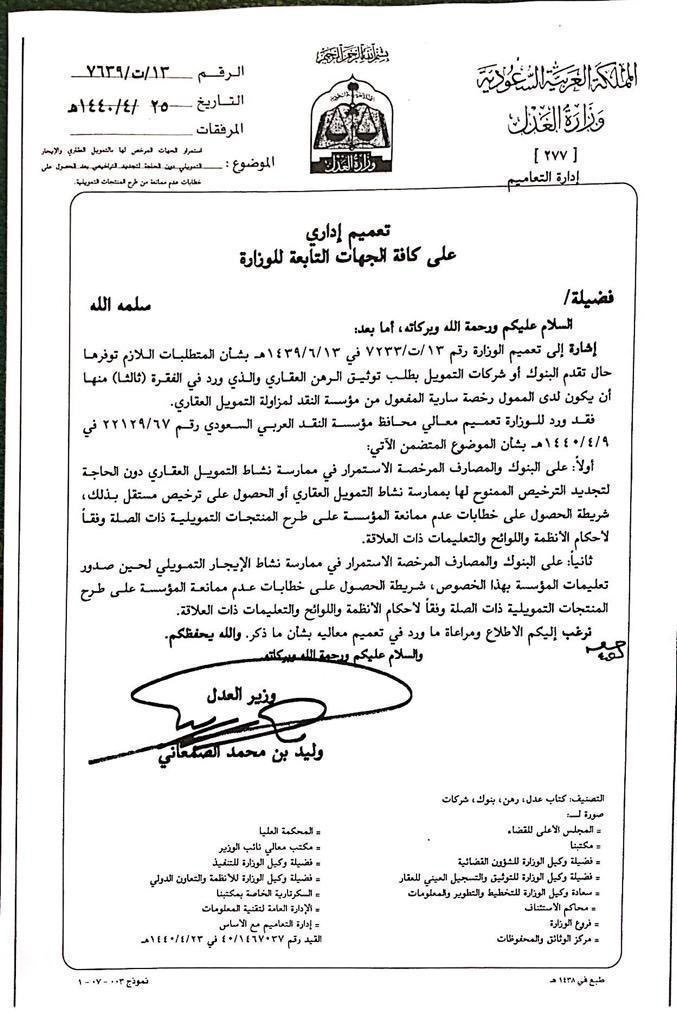 بسم الله الرحمن الرحيم
المملكة العربية السعودية
وزارة العدل
[ ٢٧٧ ]
إدارة التعاميم
وزارة العدل
الرقم ١٣/ت/٧٦٣٩
التاريخ ٢٥ /٤ /١٤٤٠هـ
المرفقات
الموضوع : استمرار الجهات المرخص لها بالتمويل العقاري والإيجار
التمويلي دون الحاجة لتجديد التراخيص بعد الحصول على
خطابات عدم ممانعة من طرح المنتجات التمويلية.
تعميم إداري
على كافة الجهات التابعة للوزارة
فضيلة/ سلمه الله
السلام عليكم ورحمة الله وبركاته، أما بعد:
إشارة إلى تعميم الوزارة رقم ١٣/ت/٧٢٣٣ في ١٤٣٩/٦/١٣هـ بشأن المتطلبات اللازم توفرها
حال تقدم البنوك أو شركات التمويل بطلب توثيق الرهن العقاري والذي ورد في الفقرة (ثالثا) منها
أن يكون لدى الممول رخصة سارية المفعول من مؤسسة النقد لمزاولة التمويل العقاري.
فقد ورد للوزارة تعميم معالي محافظ مؤسسة النقد العربي السعودي رقم ٢٢١٢٩/٦٧ في
١٤٤٠/٤/٩هـ بشأن الموضوع المتضمن الآتي:
أولاً: على البنوك والمصارف المرخصة الاستمرار في ممارسة نشاط التمويل العقاري دون الحاجة
لتجديد الترخيص الممنوح لها بممارسة نشاط التمويل العقاري أو الحصول على ترخيص مستقل بذلك،
شريطة الحصول على خطابات عدم ممانعة المؤسسة على طرح المنتجات التمويلية ذات الصلة وفقاً
لأحكام الأنظمة واللوائح والتعليمات ذات العلاقة.
ثانياً: على البنوك والمصارف المرخصة الاستمرار في ممارسة نشاط الإيجار التمويلي لحين صدور
تعليمات المؤسسة بهذا الخصوص، شريطة الحصول على خطابات عدم ممانعة المؤسسة على طرح
المنتجات التمويلية ذات الصلة وفقاً لأحكام الأنظمة واللوائح والتعليمات ذات العلاقة.
نرغب إليكم الاطلاع ومراعاة ما ورد في تعميم معاليه بشأن ما ذكر. والله يحفظكم.
والسلام عليكم ورحمة الله وبركاته.
وزير العدل
وليد بن محمد الصمعاني
التصنيف: كتاب عدل، رهن، بنوك، شركات
صورة لـ:
= المجلس الأعلى للقضاء
= مكتبنا
= فضيلة وكيل الوزارة للشؤون القضائية
= فضيلة وكيل الوزارة للتوثيق والتسجيل العيني للعقار
= سعادة وكيل الوزارة للتخطيط والتطوير والمعلومات
= محاكم الاستئناف
= فروع الوزارة
= مركز الوثائق والمحفوظات
= المحكمة العليا
= مكتب معالي نائب الوزير
= فضيلة وكيل الوزارة للتنفيذ
= فضيلة وكيل الوزارة للأنظمة والتعاون الدولي
= السكرتارية الخاصة بمكتبنا
= الإدارة العامة لتقنية المعلومات
= إدارة التعاميم مع الأساس
القيد رقم ٤٠/١٤٦٧٠٣٧ في ١٤٤٠/٤/٢٣هـ
طبع في ١٤٣٨ هـ
نموذج ٠٠٣ - ٠٧ - ١